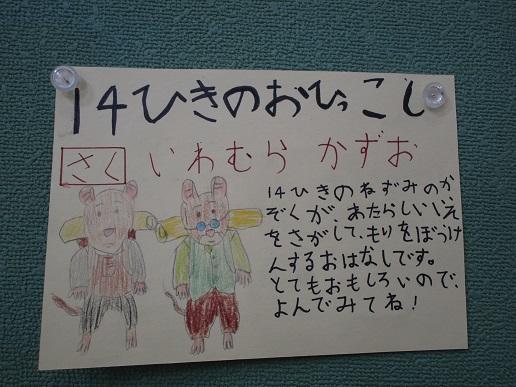 14ひきのおひっこし
さく いわむら かずお
14ひきのねずみのか
ぞくが、あたらしいいえ
をさがして、もりをぼうけ
んするおはなしです。
とてもおもしろいので、
よんでみてね！